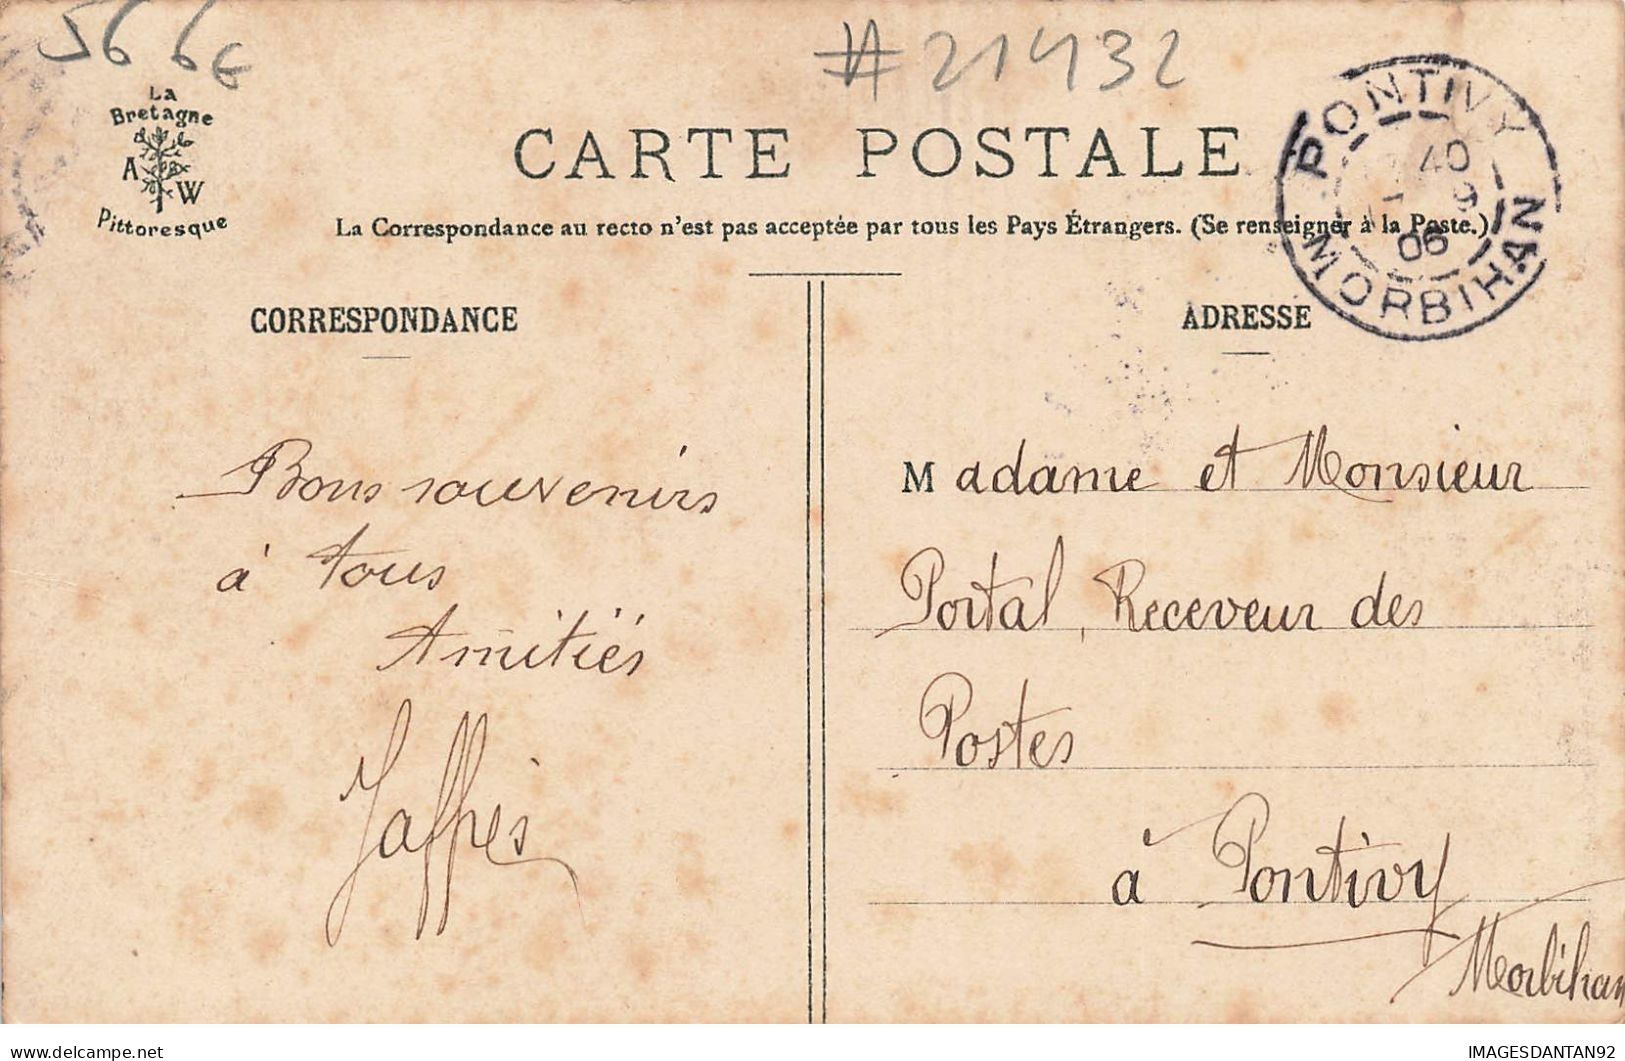 56 6€
# 21432
La
Bretagne
A W
Pittoresque
CARTE POSTALE
La Correspondance au recto n'est pas acceptée par tous les Pays Étrangers. (Se renseigner à la Poste.)
PONTIVY
40
9
06
MORBIHAN
CORRESPONDANCE
Bons souvenirs
à tous
Amitiés
Jaffrès
ADRESSE
Madame et Monsieur
Portal, Receveur des
Postes
à Pontivy
Morbihan
delcampe.net
IMAGESDANTAN92